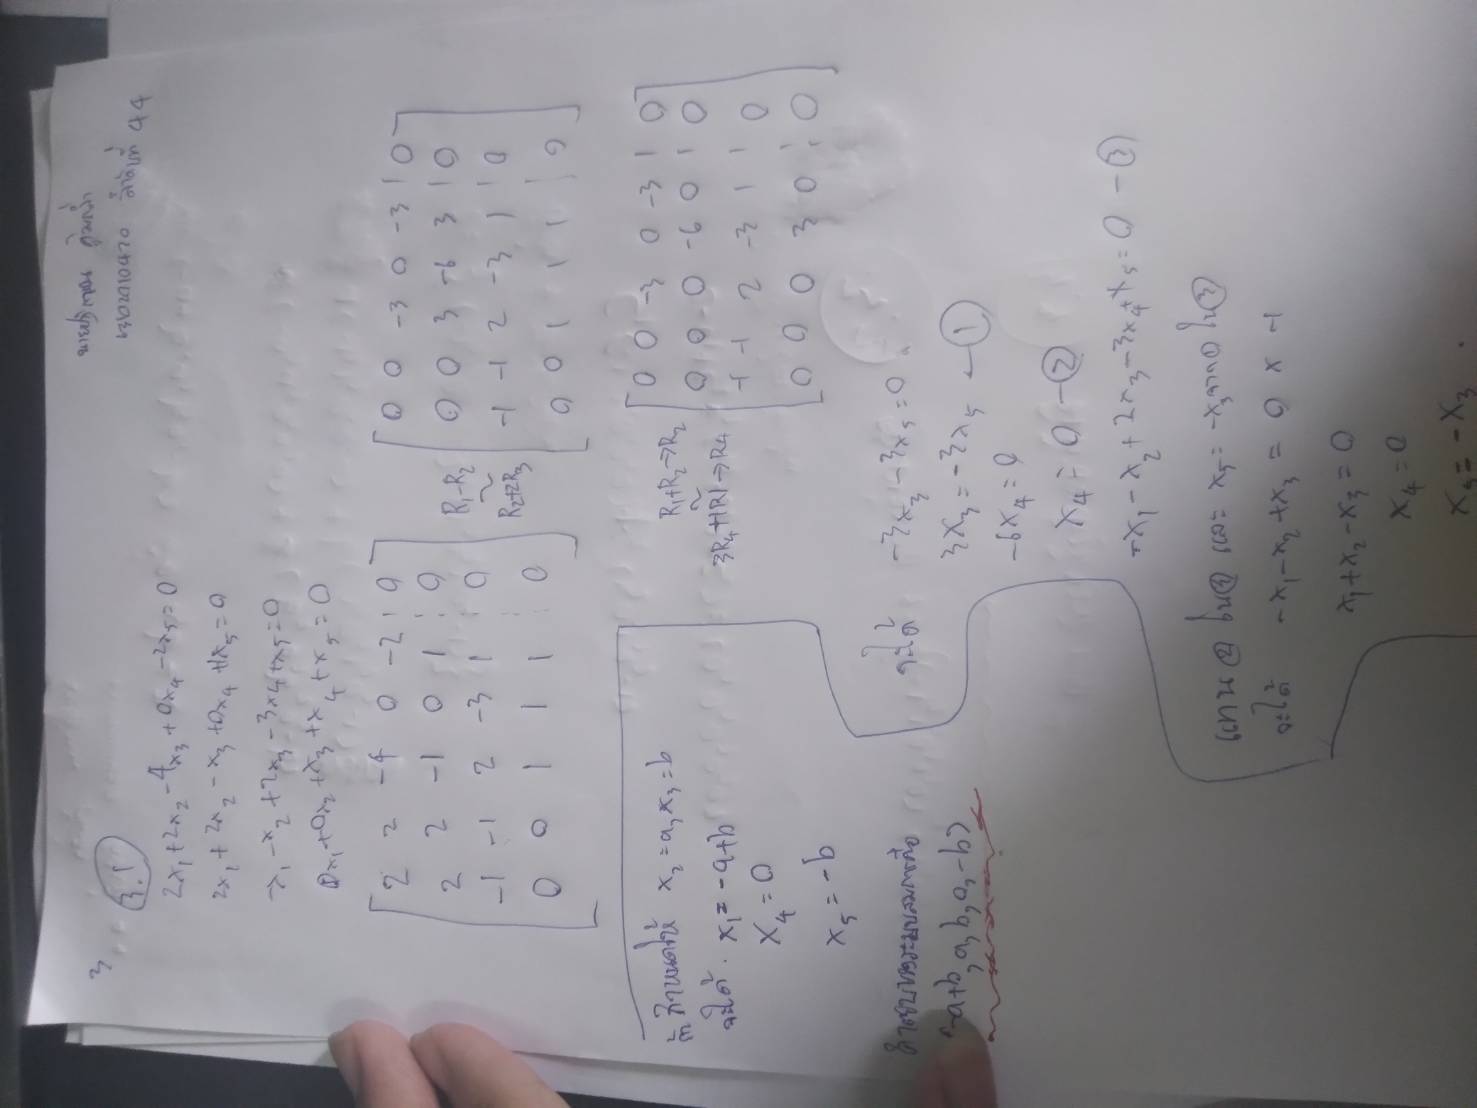 3.
3.1
2x₁+2x₂-4x₃+0x₄-2x₅=0
2x₁+2x₂-x₃+0x₄+1x₅=0
-x₁-x₂+2x₃-3x₄+x₅=0
0x₁+0x₂+x₃+x₄+x₅=0
2 2 -4 0 -2 | 0
2 2 -1 0 1 | 0
-1 -1 2 -3 1 | 0
0 0 1 1 1 | 0
R₁-R₂
~
R₂+2R₃
0 0 -3 0 -3 | 0
0 0 3 -6 3 | 0
-1 -1 2 -3 1 | 0
0 0 1 1 1 | 0
R₁+R₂→R₂
~
3R₄+1R1→R4
0 0 -3 0 -3 | 0
0 0 0 -6 0 | 0
-1 -1 2 -3 1 | 0
0 0 0 3 0 | 0
จะได้ -3x₃-3x₅=0
3x₃=-3x₅ ①
-6x₄=0
x₄=0 -②
-x₁-x₂+2x₃-3x₄+x₅=0 -③
แทน ② ใน③ และ x₅=-x₃ ใน③
จะได้ -x₁-x₂+x₃=0 x -1
x₁+x₂-x₃=0
x₄=0
x₅=-x₃
ถ้ากำหนดให้ x₂=a, x₃=b
จะได้ x₁=-a+b
x₄=0
x₅=-b
คำตอบของระบบสมการคือ
(-a+b, a, b, 0, -b)